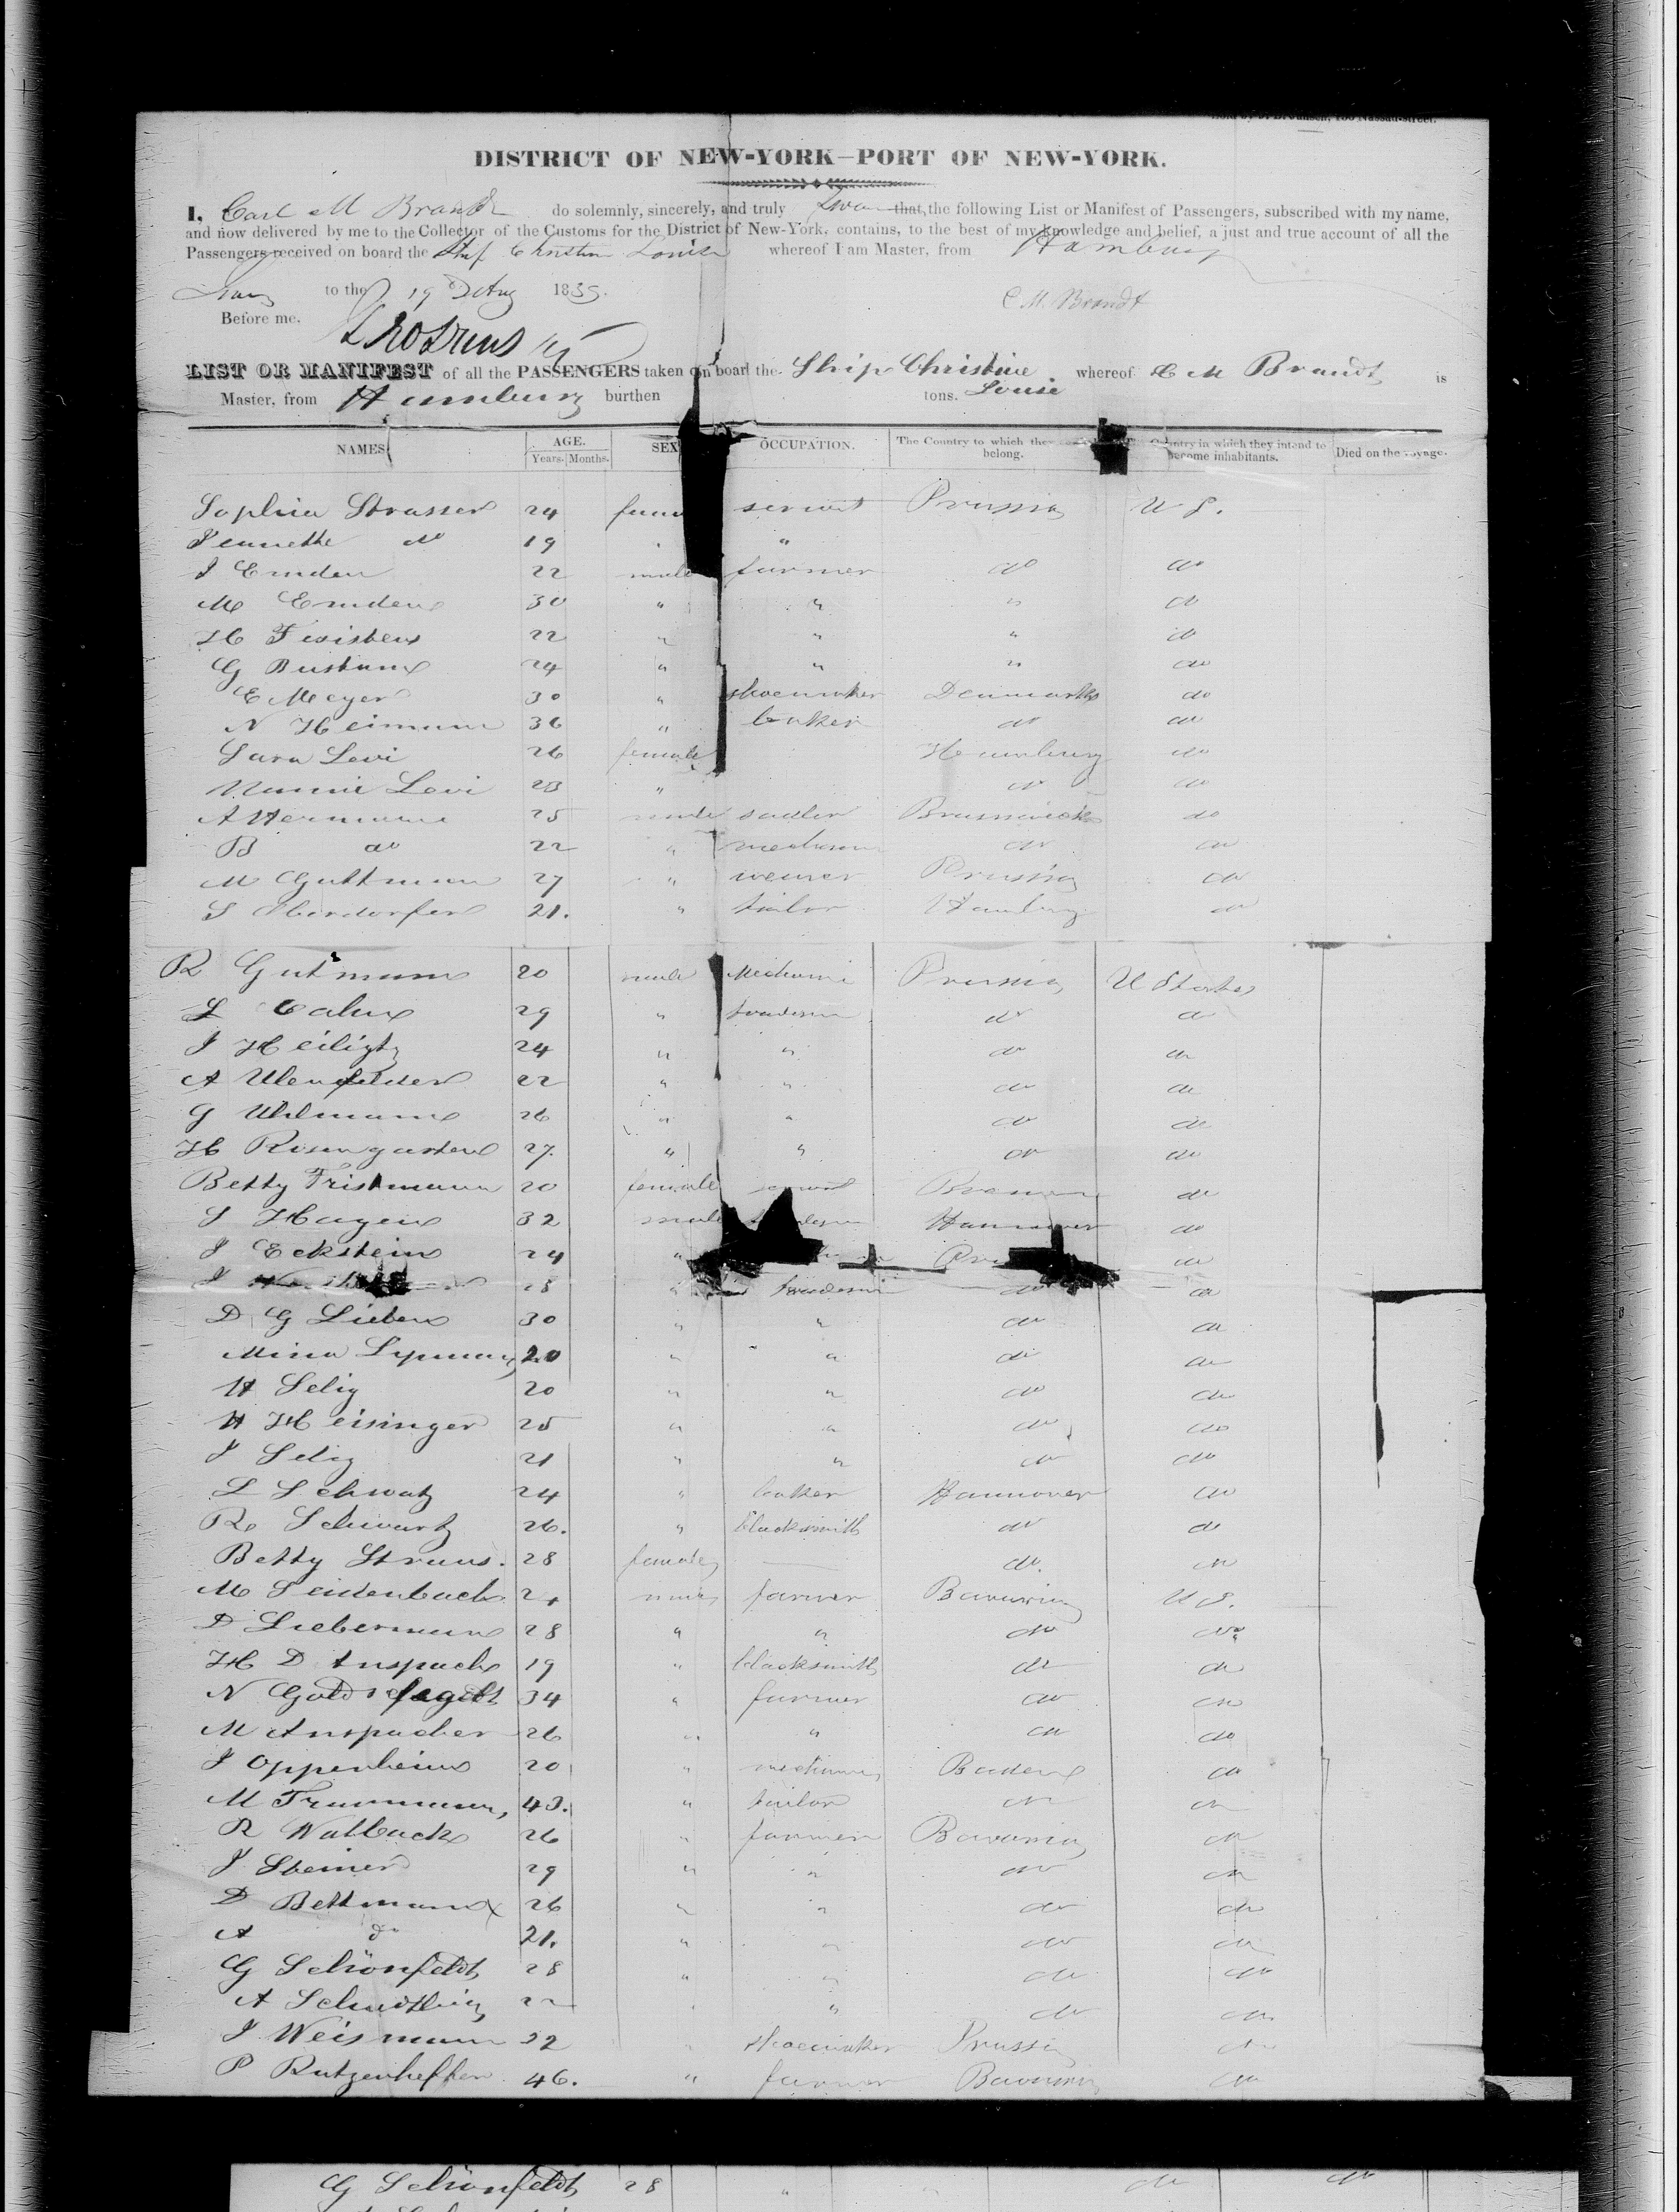 DISTRICT OF NEW-YORK—PORT OF NEW-YORK.
I, Carl M Brandt do solemnly, sincerely, and truly swear that, the following List or Manifest of Passengers, subscribed with my name,
and now delivered by me to the Collector of the Customs for the District of New-York, contains, to the best of my knowledge and belief, a just and true account of all the
Passengers received on board the Ship Christine Louise whereof I am Master, from Hamburg
to the 19 Aug 1839.
C. M. Brandt
Before me.
LIST OR MANIFEST of all the PASSENGERS taken on board the Ship Christine Louise whereof C M Brandt is
Master, from Hamburg burthen tons.
NAMES AGE. SEX OCCUPATION. The Country to which they belong. Country in which they intend to become inhabitants. Died on the voyage.
Years. Months.
Sophia Strasser 24 servant Prussia U S.
Jeannette do 19 " "
J Emden 22 male farmer do do
M Emden 30 " " " do
H 22 " " " do
G 24 " " " do
E Meyer 30 " shoemaker Denmark do
N Heimann 36 " baker do do
Sara Levi 26 female Hamburg do
Nannie Levi 23 " do do
A Hermann 25 male sadler Brunswick do
B do 22 " do do
M Guttmann 27 " weaver Prussia do
S Oberdorfer 21. " tailor Hamburg do
R Gutmann 20 male Mechanic Prussia U States
L Calm 29 " do do
J 24 " " do do
A Ulenfelder 22 " " do do
G Uhlmann 26 " " do do
H Rosengarten 27. " " do do
Betty Tristmann 20 female servant do
S Hagen 32 male Hannover do
J Eckstein 24 " do
J 28 " do do
D G Lieben 30 " " do do
Mina 20 " " do do
H Selig 20 " " do do
H Heisinger 25 " " do do
J Selig 21 " " do do
L Schwatz 24 " baker Hannover do
R Schwartz 26. " blacksmith do do
Betty Straus. 28 female — do. do
M Seidenbach 24 male farmer Bavaria U S.
D Liebermann 28 " " do do
H D Anspach 19 " blacksmith do do
N 34 " farmer do do
M Anspacher 26 " " do do
J Oppenheim 20 " mechanic Baden do
M Traumann, 43. " tailor do do
R Wallach 26 " farmer Bavaria do
J Steiner 29 " " do do
D Bettmann 26 " " do do
A do 21. " " do do
G Schönfeldt 28 " " do do
A 22 " " do do
J Weismann 32 " shoemaker Prussia do
P 46. " farmer Bavaria do
G Schönfeldt 28 " do do